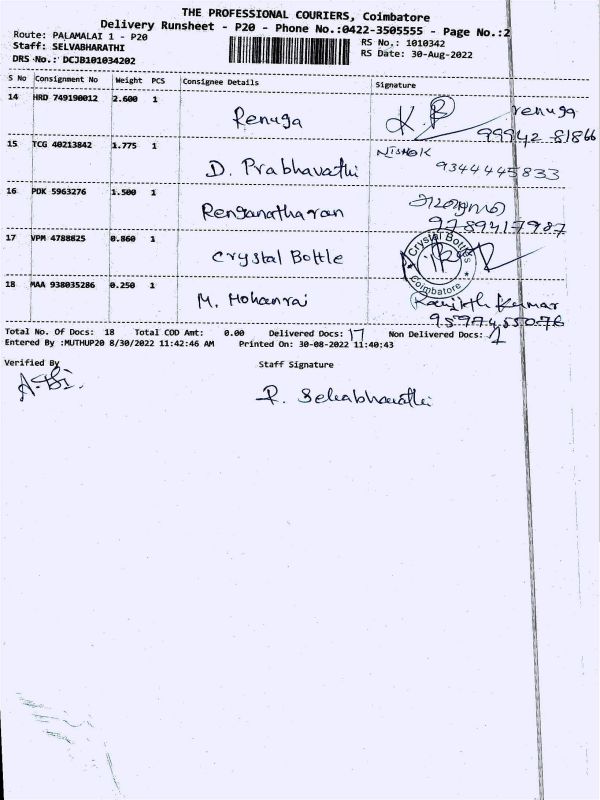 THE PROFESSIONAL COURIERS, Coimbatore
Delivery Runsheet - P20 - Phone No.:0422-3505555 - Page No.:2
Route: PALAMALAI 1 - P20
Staff: SELVABHARATHI
RS No.: 1010342
DRS No.: DCJB101034202
RS Date: 30-Aug-2022
S No Consignment No Weight PCS Consignee Details Signature
14 HRD 749190012 2.600 1 Renuga K.R renuga
99942 81866
15 TCG 40213842 1.775 1 D. Prabhavathi NISHOK
9344445833
16 PDK 5963276 1.500 1 Renganatharan
9789417987
17 VPM 4788825 0.860 1 Crystal Bottle Crystal Bottles
Coimbatore
18 MAA 938035286 0.250 1 M. Mohanraj Ranjith Kumar
9597455076
Total No. Of Docs: 18 Total COD Amt: 0.00 Delivered Docs: 17 Non Delivered Docs: 1
Entered By :MUTHUP20 8/30/2022 11:42:46 AM Printed On: 30-08-2022 11:40:43
Verified By Staff Signature
R. Selvabharathi